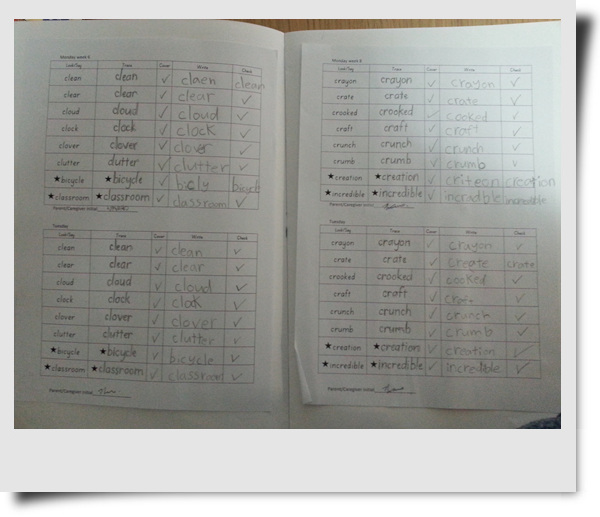 Monday week 6
Look/Say Trace Cover Write Check
clean clean ✓ claen clean
clear clear ✓ clear ✓
cloud cloud ✓ cloud ✓
clock clock ✓ clock ✓
clover clover ✓ clover ✓
clutter clutter ✓ clutter ✓
★bicycle ★bicycle ✓ bicly
★classroom ★classroom ✓ classroom ✓
Parent/Caregiver initial
Tuesday
Look/Say Trace Cover Write Check
clean clean ✓ clean ✓
clear clear ✓ clear ✓
cloud cloud ✓ cloud ✓
clock clock ✓ clock ✓
clover clover ✓ clover ✓
clutter clutter ✓ clutter ✓
★bicycle ★bicycle ✓ bicycle ✓
★classroom ★classroom ✓ classroom ✓
Parent/Caregiver initial
Monday week 6
Look/Say Trace Cover Write Check
crayon crayon ✓ crayon ✓
crate crate ✓ crate ✓
crooked crooked ✓ cooked ✓
craft craft ✓ craft ✓
crunch crunch ✓ crunch ✓
crumb crumb ✓ crumb ✓
★creation ★creation ✓ criteon creation
★incredible ★incredible ✓ incradble incredible
Parent/Caregiver initial
Tuesday
Look/Say Trace Cover Write Check
crayon crayon ✓ crayon ✓
crate crate ✓ create crate
crooked crooked ✓ cooked ✓
craft craft ✓ craft ✓
crunch crunch ✓ crunch ✓
crumb crumb ✓ crumb ✓
★creation ★creation ✓ creation ✓
★incredible ★incredible ✓ incredible ✓
Parent/Caregiver initial